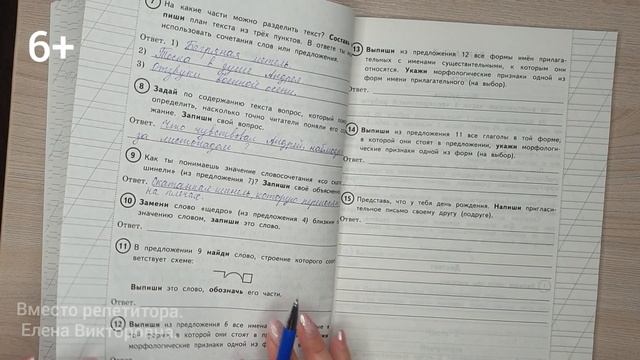 6+
7 На какие части можно разделить текст? Составь
пиши план текста из трёх пунктов. В ответе ты
использовать сочетания слов или предложения.
Ответ. 1) Багряная метель
2) Тоска в душе Андрея
3) Отзвуки военной осени.
8 Задай по содержанию текста вопрос, который
определить, насколько точно читатели поняли его
жание. Запиши свой вопрос.
Ответ. Что чувствовал Андрей, наблюдая
за листопадом
9 Как ты понимаешь значение словосочетания «со
шинели» (из предложения 7)? Запиши своё объяснение
Ответ. Скатанная шинель, которую
на плечах.
10 Замени слово «щедро» (из предложения 4) близким
значению словом, запиши это слово.
Ответ.
11 В предложении 9 найди слово, строение которого
ветствует схеме:
Выпиши это слово, обозначь его части.
Ответ.
12 Выпиши из предложения 6 все имена
форме, в которой они стоят в
морфологические признаки одной из
Ответ.
13 Выпиши из предложения 12 все формы имён прилага-
тельных с именами существительными, к которым они
относятся. Укажи морфологические признаки одной из
форм имени прилагательного (на выбор).
Ответ.
14 Выпиши из предложения 11 все глаголы в той форме,
в которой они стоят в предложении, укажи морфологи-
ческие признаки одной из форм (на выбор).
Ответ.
15 Представь, что у тебя день рождения. Напиши пригласи-
тельное письмо своему другу (подруге).
Ответ.
Вместо репетитора.
Елена Викторовна.